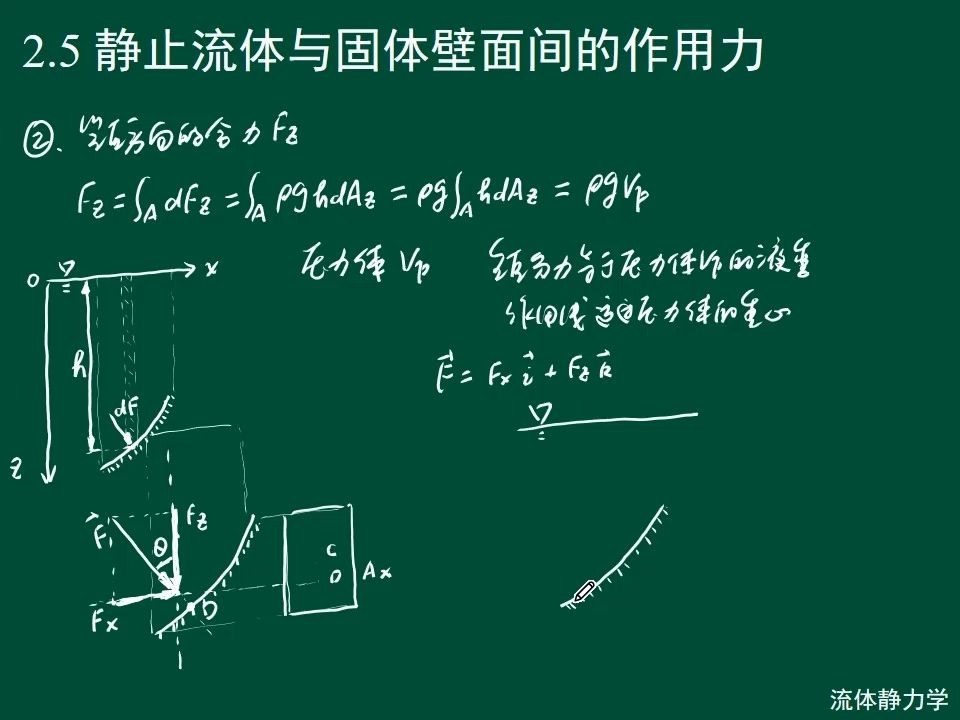 2.5 静止流体与固体壁面间的作用力
②. 竖直方向的合力 Fz
Fz = ∫A dFz = ∫A ρghdAz = ρg∫A hdAz = ρgVp
压力体 Vp 竖直分力等于压力体内的液重
作用线通过压力体的重心
F⃗ = Fx i⃗ + Fz k⃗
O x
h
dF
z
F⃗ θ Fz
Fx D
C
Ax
流体静力学